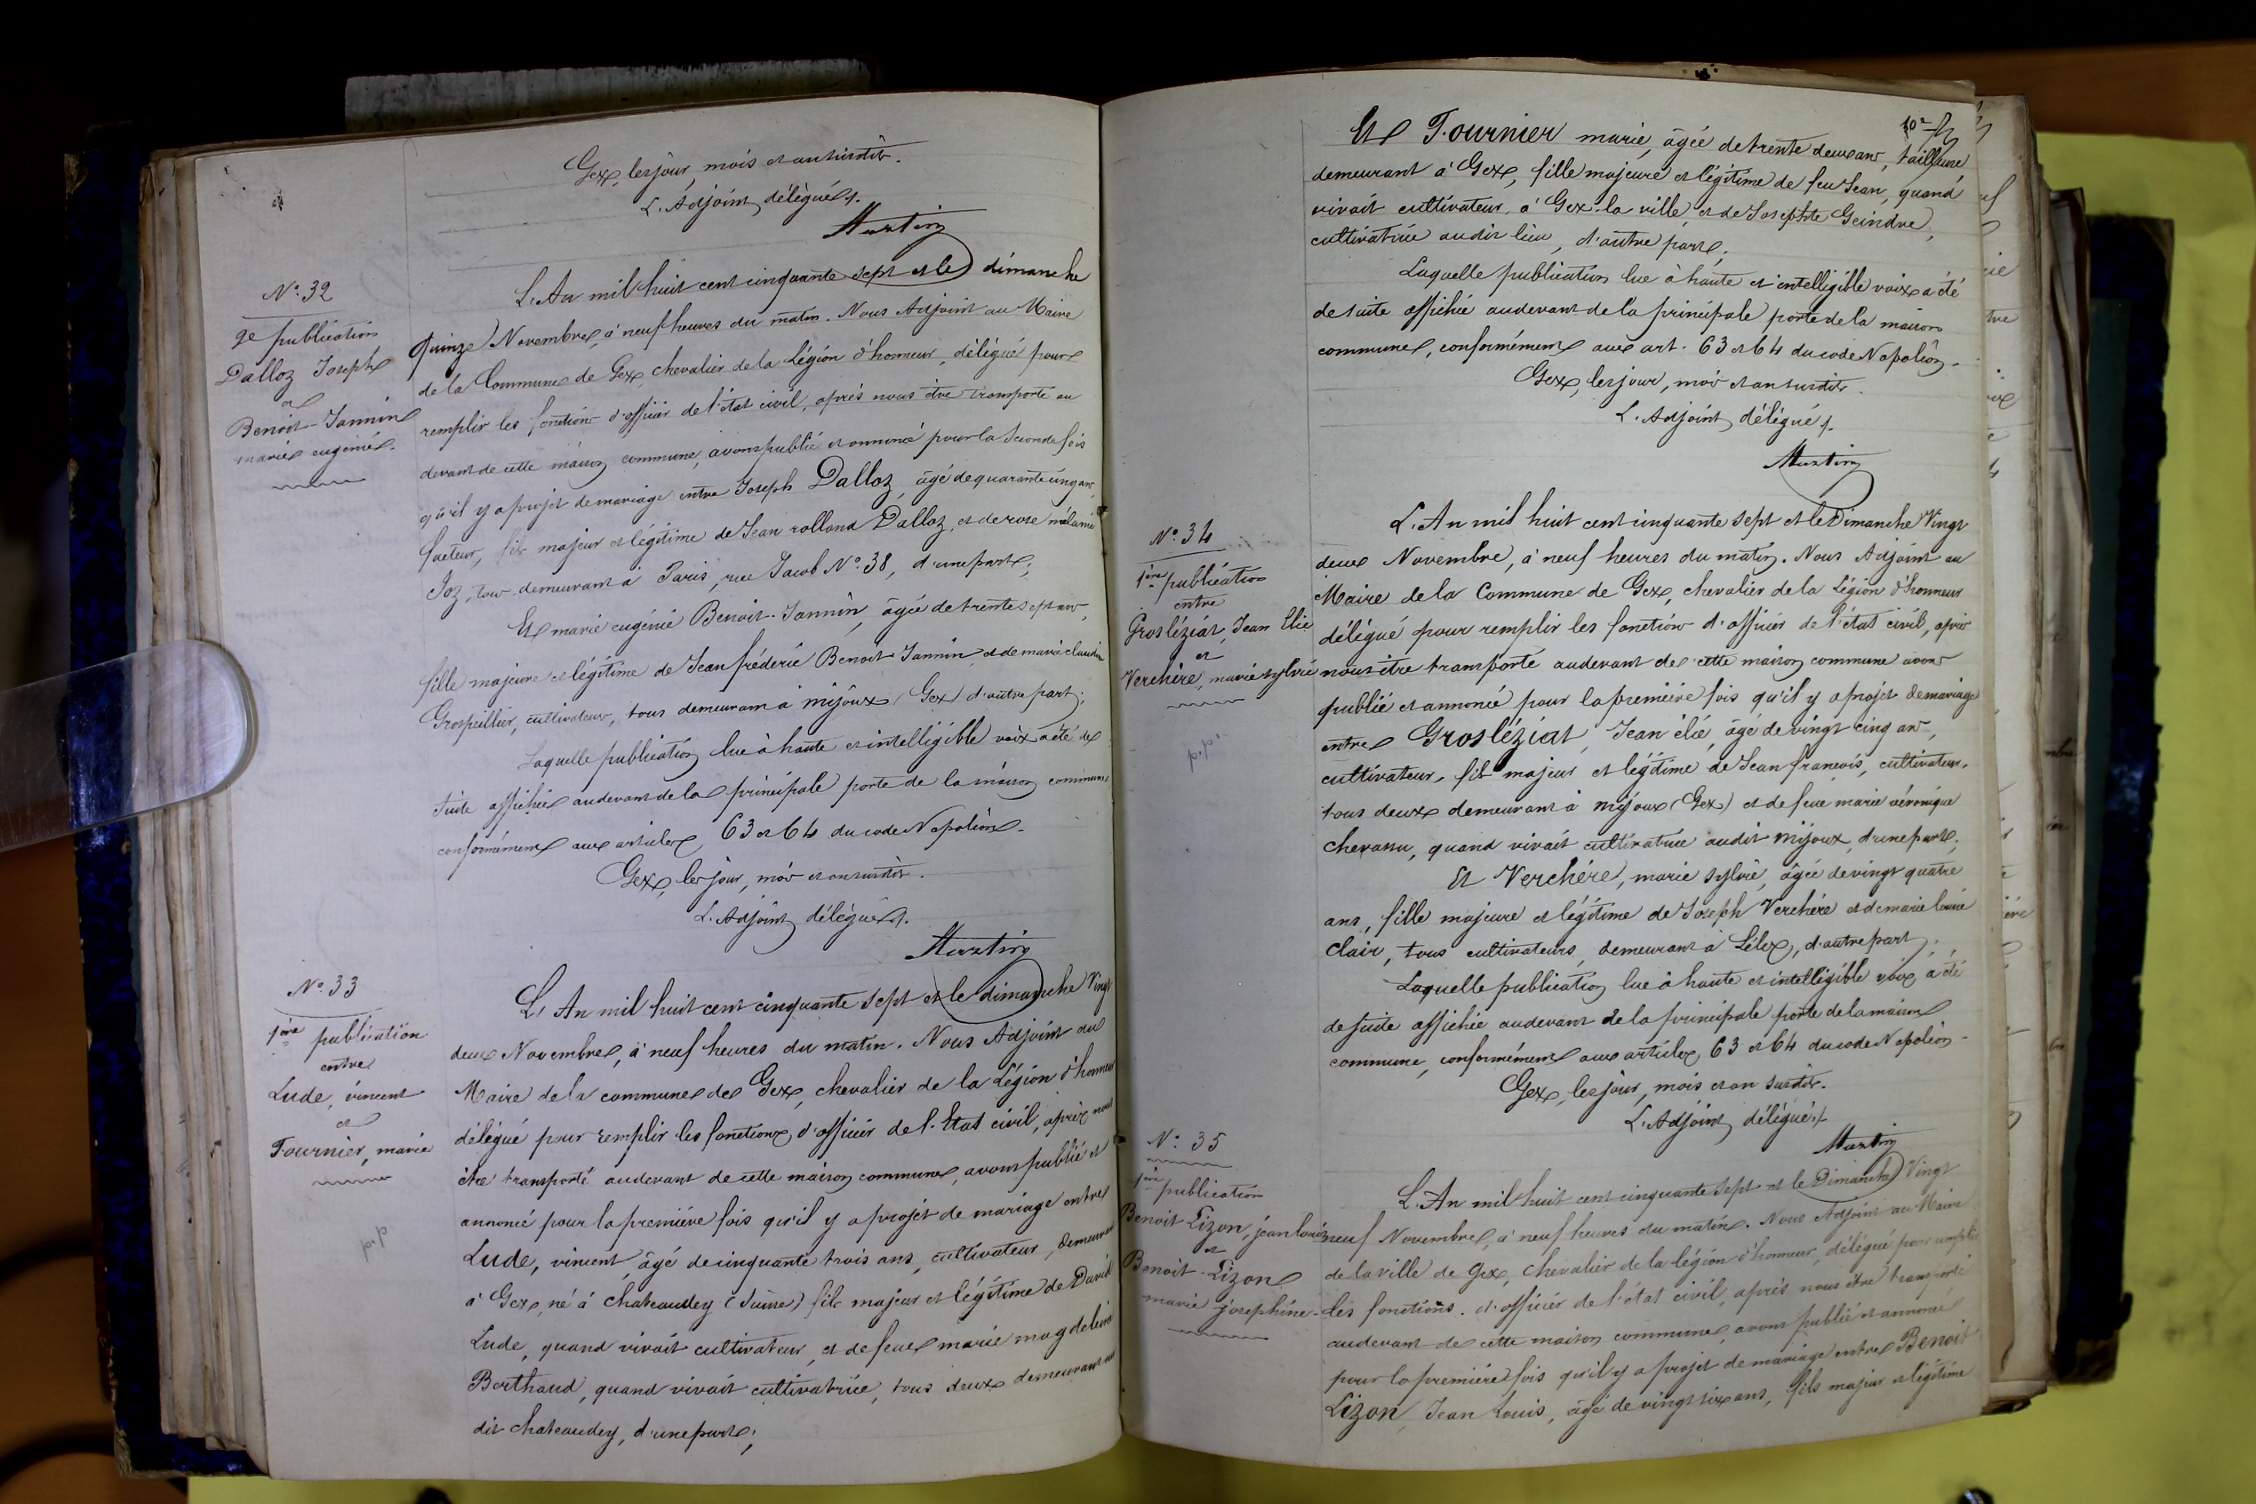 Gex, les jour, mois et an susdits.
L'Adjoint délégué.
Martin
N° 32
2e publication
Dalloz Joseph
et
Benoit-Jannin
marie eugénie.
L'An mil huit cent cinquante sept et le dimanche
quinze Novembre, à neuf heures du matin. Nous Adjoint au Maire
de la Commune de Gex, chevalier de la légion d'honneur, délégué pour
remplir les fonctions d'officier de l'état civil, après nous être transporté au
devant de cette maison commune, avons publié et annoncé pour la seconde fois
qu'il y a projet de mariage entre Joseph Dalloz, âgé de quarante cinq ans,
facteur, fils majeur et légitime de Jean rolland Dalloz, et de rose mélanie
Joz, tous demeurant à Paris, rue Jacob N° 38, d'une part;
Et marie eugénie Benoit-Jannin, âgée de trente sept ans,
fille majeure et légitime de Jean frédéric Benoit-Jannin et de marie claudine
Grospellier, cultivateurs, tous demeurant à mijoux (Gex) d'autre part;
Laquelle publication lue à haute et intelligible voix a été de
suite affichée au devant de la principale porte de la maison commune
conformément aux articles 63 et 64 du code Napoléon.
Gex, les jour, mois et an susdits.
L'Adjoint délégué.
Martin
N° 33
1ère publication
entre
Lude, vincent
et
Fournier, marie
p.p
L'An mil huit cent cinquante sept et le dimanche Vingt
deux Novembre, à neuf heures du matin. Nous Adjoint au
Maire de la commune de Gex, chevalier de la Légion d'honneur
délégué pour remplir les fonctions d'officier de l'Etat civil, après nous
être transporté au devant de cette maison commune, avons publié et
annoncé pour la première fois qu'il y a projet de mariage entre
Lude, vincent, âgé de cinquante trois ans, cultivateur, demeurant
à Gex, né à chateaudey (Suisse) fils majeur et légitime de David
Lude, quand vivait cultivateur, et de feue marie magdeleine
Berthaud, quand vivait cultivatrice, tous deux demeurant au
dit chateaudey, d'une part;
102
Et Fournier marie, âgée de trente deux ans, tailleuse
demeurant à Gex, fille majeure et légitime de feu Jean, quand
vivait cultivateur à Gex-la ville, et de Josephte Geindre,
cultivatrice au dit lieu, d'autre part;
Laquelle publication lue à haute et intelligible voix a été
de suite affichée au devant de la principale porte de la maison
commune, conformément aux art. 63 et 64 du code Napoléon.
Gex, les jour, mois et an susdits.
L'Adjoint délégué.
Martin
N° 34
1ère publication
entre
Grosléziat, Jean Elie
et
Verchère, marie sylvie
p.p.
L'An mil huit cent cinquante sept et le Dimanche Vingt
deux Novembre, à neuf heures du matin. Nous Adjoint au
Maire de la Commune de Gex, chevalier de la Légion d'honneur
délégué pour remplir les fonctions d'officier de l'état civil, après
nous être transporté au devant de cette maison commune avons
publié et annoncé pour la première fois qu'il y a projet de mariage
entre Grosléziat, Jean élie, âgé de vingt cinq ans,
cultivateur, fils majeur et légitime de Jean françois, cultivateur,
tous deux demeurant à mijoux (Gex) et de feue marie véronique
chevassu, quand vivait cultivatrice au dit mijoux, d'une part,
Et Verchère, marie sylvie, âgée de vingt quatre
ans, fille majeure et légitime de Joseph Verchère et de marie louise
Clair, tous cultivateurs, demeurant à Lélex, d'autre part;
Laquelle publication lue à haute et intelligible voix, a été
de suite affichée au devant de la principale porte de la maison
commune, conformément aux articles 63 et 64 du code Napoléon.
Gex, les jour, mois et an susdits.
L'Adjoint délégué.
Martin
N° 35
1ère publication
Benoit Lizon, jean louis
et
Benoit-Lizon
marie josephine.
L'An mil huit cent cinquante sept et le Dimanche Vingt
neuf Novembre, à neuf heures du matin. Nous Adjoint au Maire
de la ville de Gex, chevalier de la légion d'honneur, délégué pour remplir
les fonctions d'officier de l'état civil, après nous être transporté
au devant de cette maison commune, avons publié et annoncé
pour la première fois qu'il y a projet de mariage entre Benoit
Lizon, Jean Louis, âgé de vingt six ans, fils majeur et légitime